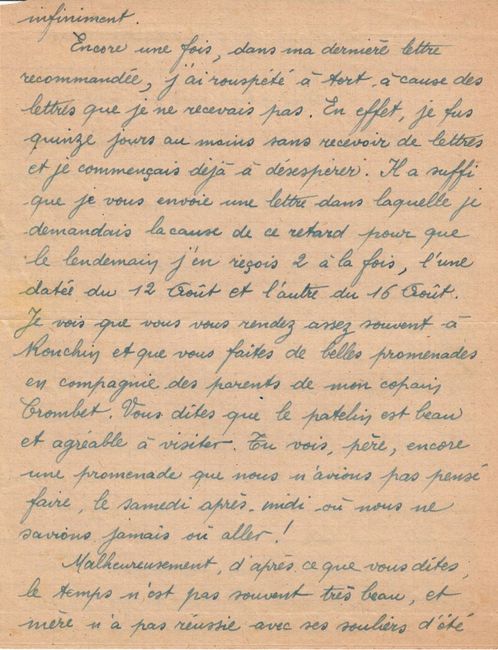 infiniment.
Encore une fois, dans ma dernière lettre
recommandée, j'ai rouspété à tort, à cause des
lettres que je ne recevais pas. En effet, je fus
quinze jours au moins sans recevoir de lettres
et je commençais déjà à désespérer. Il a suffi
que je vous envoie une lettre dans laquelle je
demandais la cause de ce retard pour que
le lendemain j'en reçois 2 à la fois, l'une
datée du 12 Août et l'autre du 16 Août.
Je vois que vous vous rendez assez souvent à
Ronchin et que vous faites de belles promenades
en compagnie des parents de mon copain
Trombet. Vous dites que le patelin est beau
et agréable à visiter. Tu vois, père, encore
une promenade que nous n'avions pas pensé
faire, le samedi après-midi où nous ne
savions jamais où aller!
Malheureusement, d'après ce que vous dites,
le temps n'est pas souvent très beau, et
mère n'a pas réussie avec ses souliers d'été